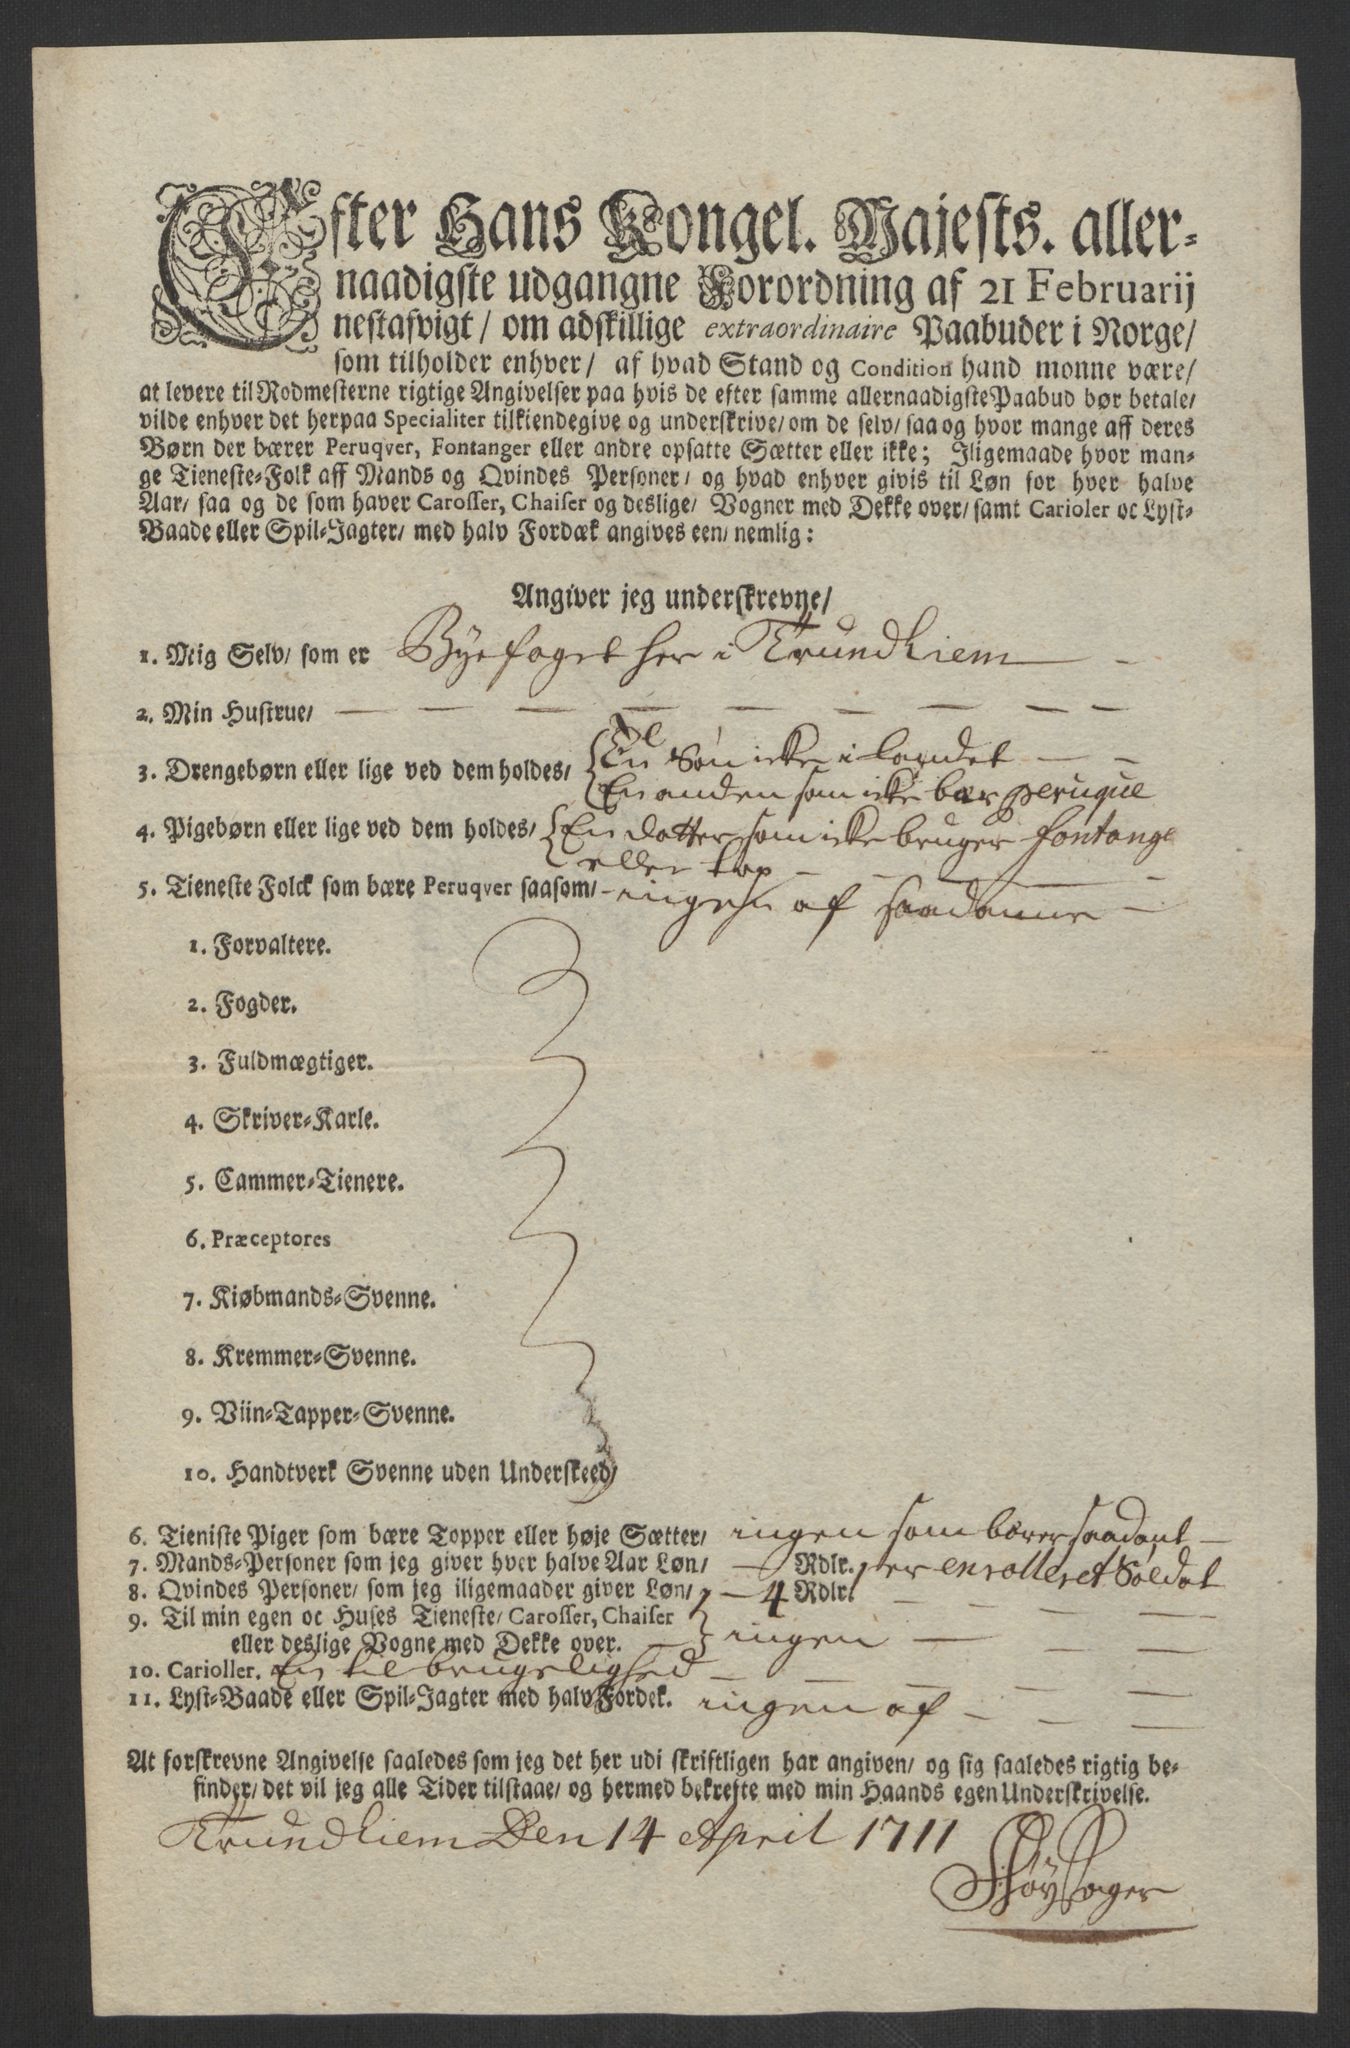 Efter Hans Kongel. Majests. aller-
naadigste udgangne Forordning af 21 Februarij
nestafvigt/ om adskillige extraordinaire Paabuder i Norge/
som tilholder enhver/ af hvad Stand og Condition hand monne være/
at levere til Rodmesterne rigtige Angivelser paa hvis de efter samme allernaadigste Paabud bør betale/
vilde enhver det herpaa Specialiter tilkiendegive og underskrive/ om de selv/ saa og hvor mange aff deres
Børn der bærer Peruqver, Fontanger eller andre opsatte Sætter eller ikke; Iligemaade hvor man-
ge Tieneste-Folk aff Mands og Qvindes Personer/ og hvad enhver givis til Løn for hver halve
Aar/ saa og de som haver Carosser, Chaiser og deslige/ Vogner med Dekke over/ samt Carioler oc Lyst-
Baade eller Spil-Jagter/ med halv Fordæk angives een/ nemlig:
Angiver jeg underskrevne/
1. Mig Selv/ som er Byefoget her i Trundhiem
2. Min Hustrue/
3. Drengebørn eller lige ved dem holdes/ En Søn icke i landet
En anden som icke bær peruque
4. Pigebørn eller lige ved dem holdes/ En datter som icke bruger fontange
eller top
5. Tieneste Folck som bære Peruqver saasom/ ingen af saadanne
1. Forvaltere.
2. Fogder.
3. Fuldmægtiger.
4. Skriver-Karle.
5. Cammer-Tienere.
6. Præceptores
7. Kiøbmands-Svenne.
8. Kremmer-Svenne.
9. Viin-Tapper-Svenne.
10. Handtverk Svenne uden Underskeed/
6. Tieniste Piger som bære Topper eller høje Sætter/ ingen som bærer saadant
7. Mands-Personer som jeg giver hver halve Aar Løn/ — Rdlr. er enrolleret Soldat
8. Qvindes Personer/ som jeg iligemaader giver Løn/ — 4 Rdlr.
9. Til min egen oc Huses Tieneste/ Carosser, Chaiser
eller deslige Vogne med Dekke over. ingen
10. Carioller. En til brugelighed
11. Lyst-Baade eller Spil-Jagter med halv Fordek. ingen af
At forskrevne Angivelse saaledes som jeg det her udi skriftligen har angiven/ og sig saaledes rigtig be-
finder/ det vil jeg alle Tider tilstaae/ og hermed bekrefte med min Haands egen Underskrivelse.
Trundhiem Den 14 April 1711